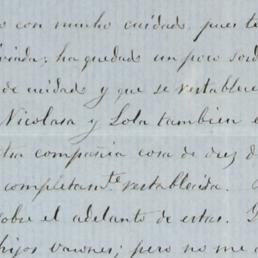 o con mucho cuidado, pues te
ha quedado un poco sord
de cuidado y que se restablec
Nicolasa y Lola tambien e
compañia cosa de diez d
completamte restablecida.
sobre el adelanto de estas.
hijos varones; pero no me